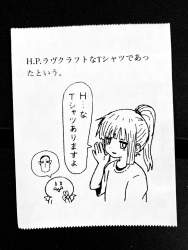 H.P.ラヴクラフトなTシャツであっ
たという。
H…な
Tシャツありますよ